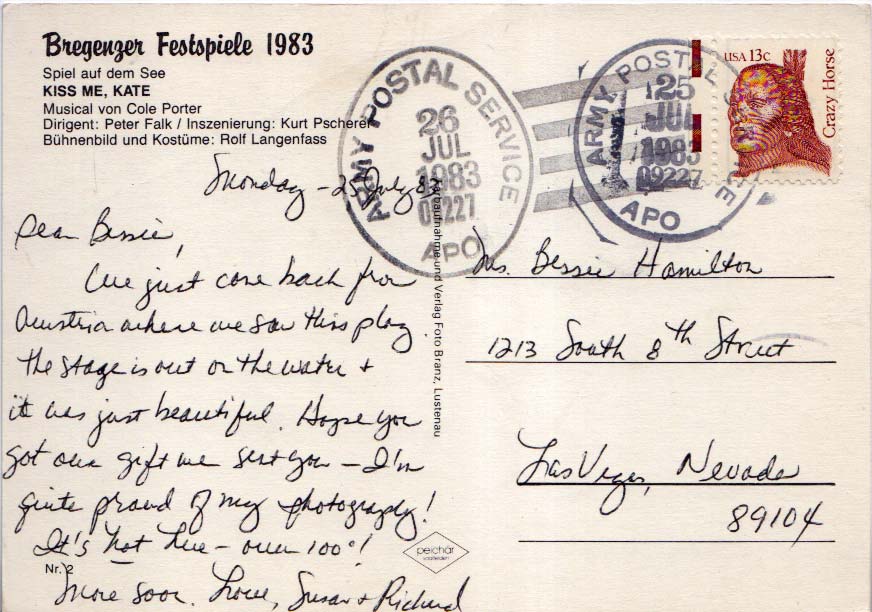 Bregenzer Festspiele 1983
Spiel auf dem See
KISS ME, KATE
Musical von Cole Porter
Dirigent: Peter Falk / Inszenierung: Kurt Pscherer
Bühnenbild und Kostüme: Rolf Langenfass
Monday - 25 July 83
Dear Bessie,
We just came back from
Austria where we saw this play
the stage is out on the water +
it was just beautiful. Hope you
got our gift we sent you - I'm
quite proud of my photography!
It's hot here - over 100°!
More soon. Love, Susan + Richard
Nr. 2
peichär
Farbaufnahme und Verlag Foto Branz, Lustenau
ARMY POSTAL SERVICE
26
JUL
1983
09227
APO
ARMY POSTAL SERVICE
25
JUL
1983
09227
APO
USA 13c
Crazy Horse
Ms. Bessie Hamilton
1213 South 8th Street
Las Vegas, Nevada
89104